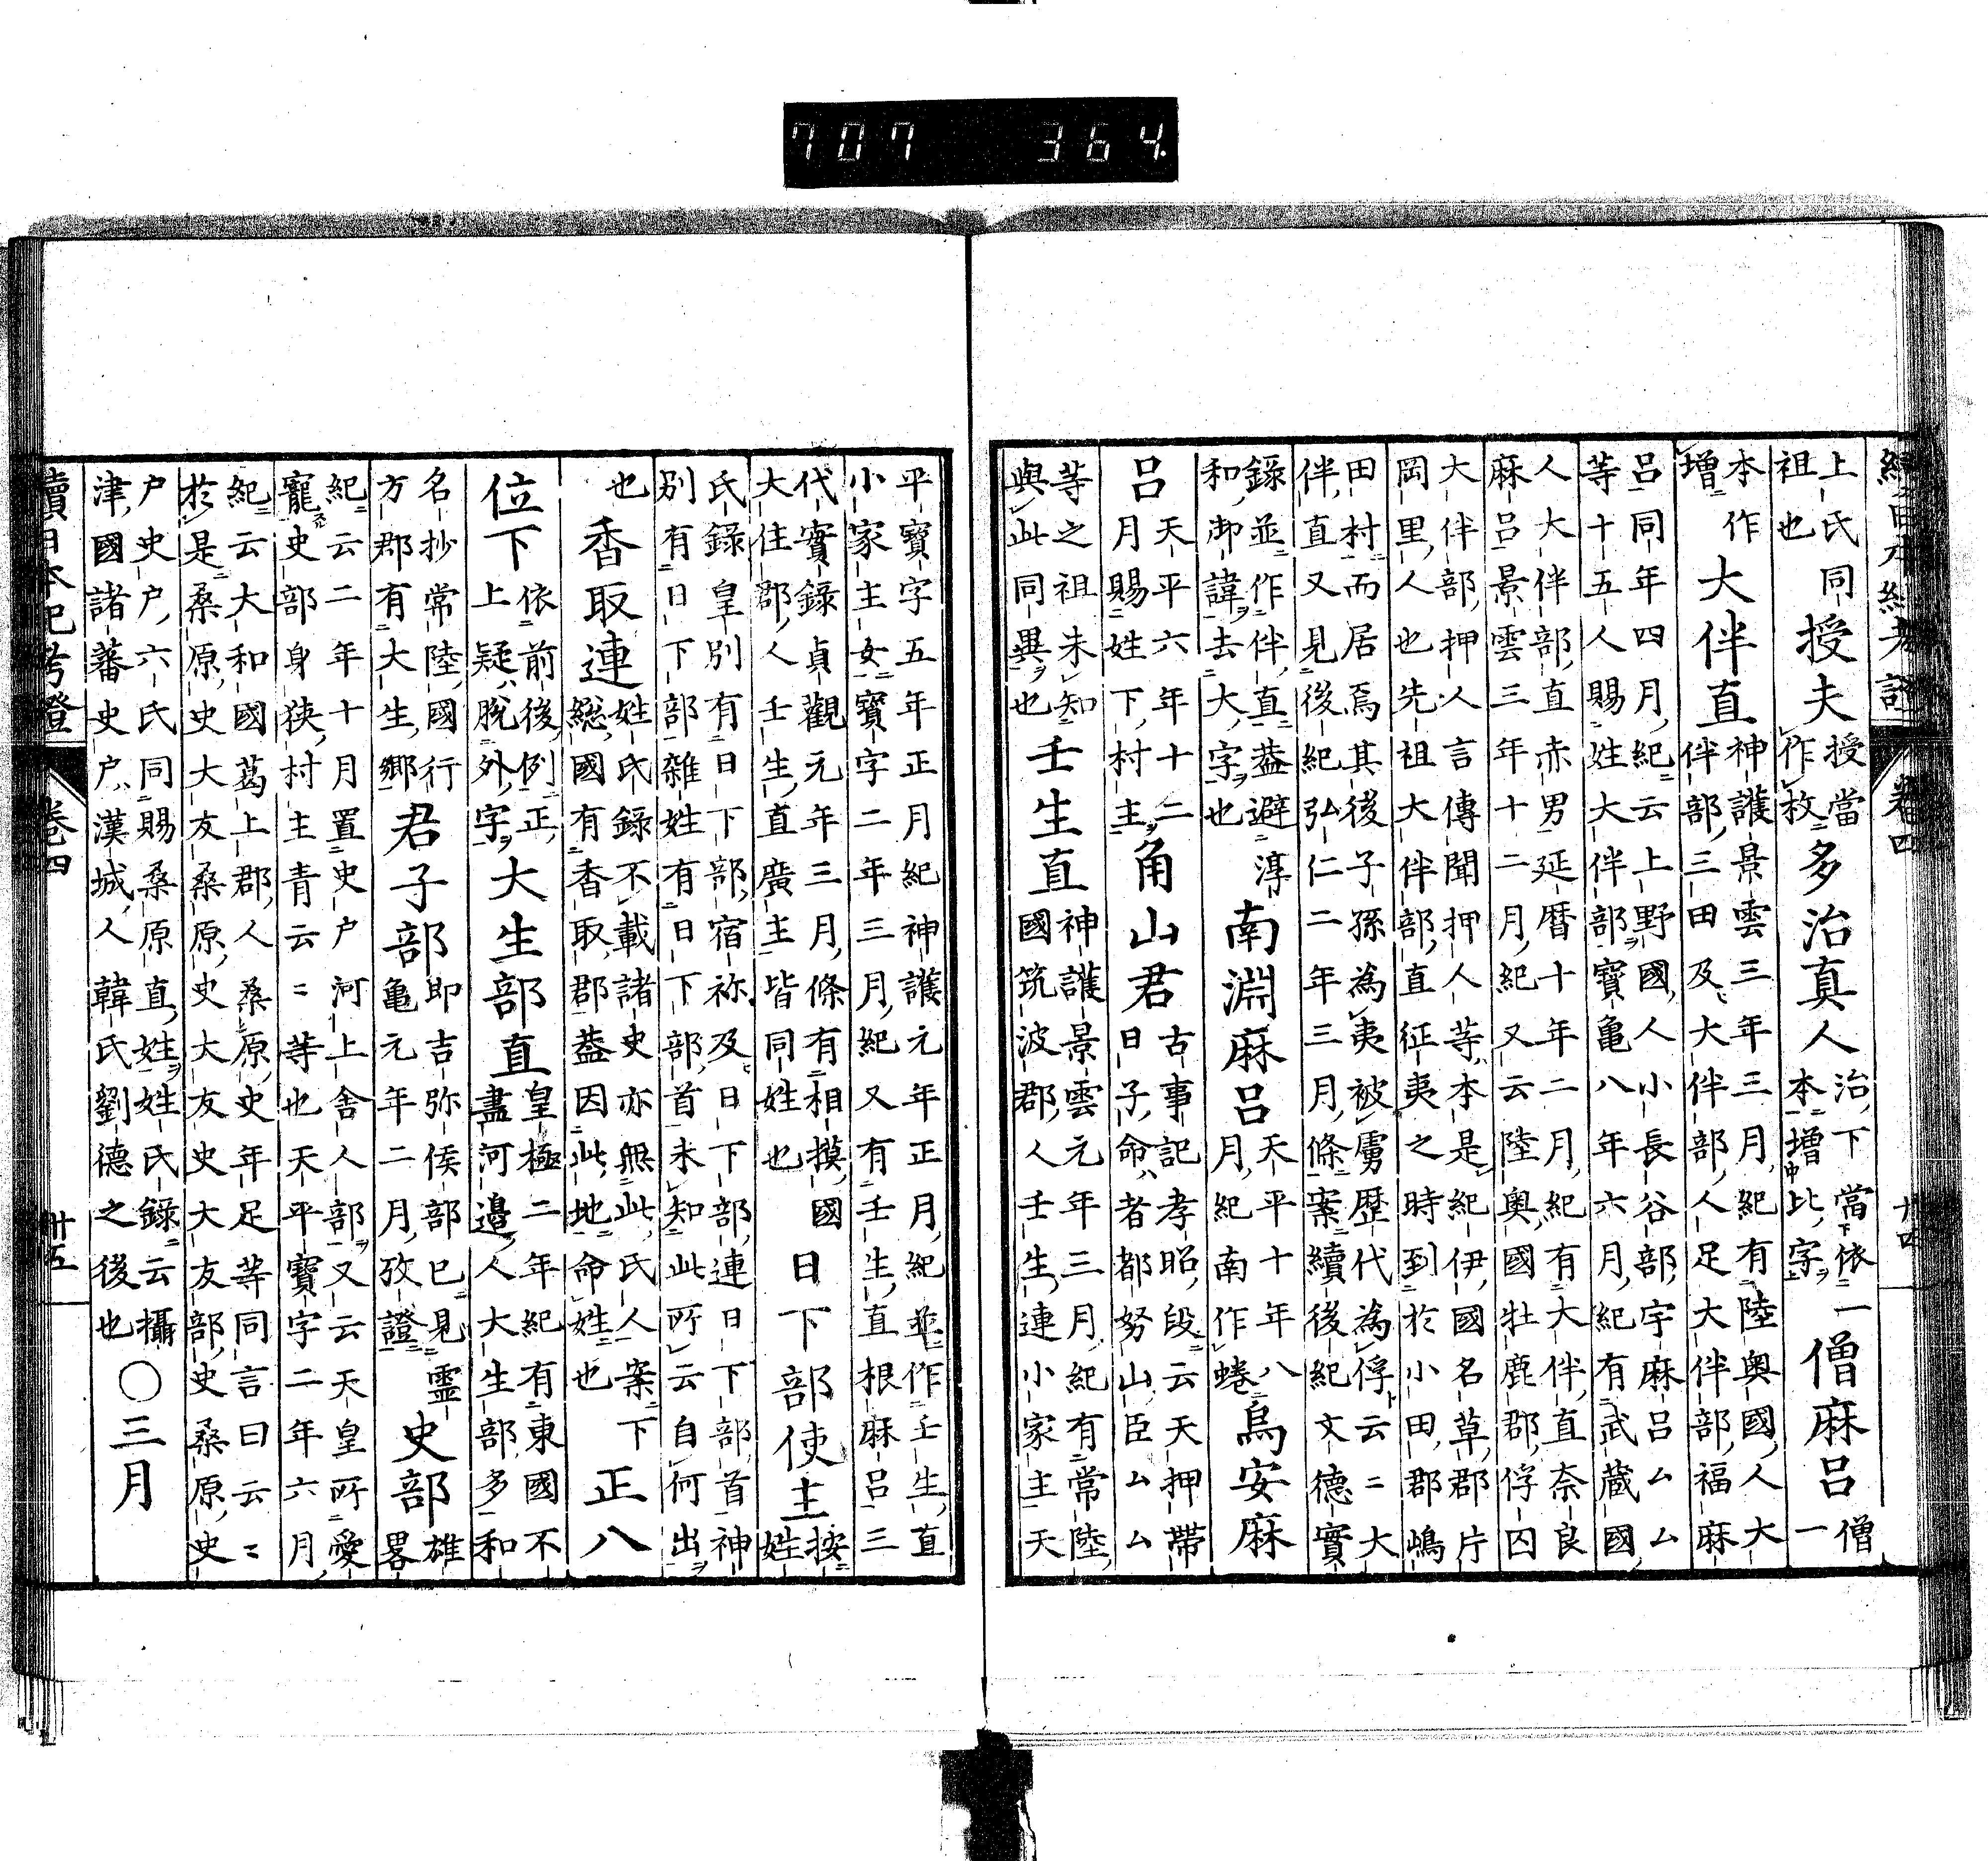 續日本紀考證 卷四 廿四
上氏同祖也 授夫 授當作枚 多治真人 治下當依一本增比字 僧麻呂 僧一
本作增 大伴直 神護景雲三年三月紀有陸奥國人大伴部三田及大伴部人足大伴部福麻
呂同年四月紀云上野國人小長谷部宇麻呂ムム等十五人賜姓大伴部寳亀八年六月紀有武蔵國
人大伴部直赤男延暦十年二月紀有大伴直奈良麻呂景雲三年十二月紀又云陸奥國牡鹿郡俘囚
大伴部押人言傳聞押人等本是紀伊國名草郡片岡里人也先祖大伴部直征夷之時到於小田郡嶋
田村而居焉其後子孫為夷被虜歷代為俘云〻大伴直又見後紀弘仁二年三月條案續後紀文德實
錄並作伴直葢避淳和御諱去大字也 南淵麻呂 天平十年八月紀南作蜷 烏安麻
呂 天平六年十二月賜姓下村主 角山君 古事記孝昭段云天押帶日子命者都努山臣ムム
等之祖未知與此同異也 壬生直 神護景雲元年三月紀有常陸國筑波郡人壬生連小家主天
平寶字五年正月紀神護元年正月紀並作壬生直小家主女寶字二年三月紀又有壬生直根麻呂三
代實錄貞觀元年三月條有相摸國大住郡人壬生直廣主皆同姓也 日下部使主 按姓
氏錄皇別有日下部宿祢及日下部連日下部首神別有日下部雜姓有日下部首未知此所云自何出
也 香取連 姓氏錄不載諸史亦無此氏人案下総國有香取郡葢因此地命姓也 正八
位下 依前後例正上疑脫外字 大生部直 皇極二年紀有東國不盡河邊人大生部多和
名抄常陸國行方郡有大生鄉 君子部 即吉弥侯部已見靈亀元年二月攷證 史部 雄畧
紀云二年十月置史戶河上舍人部又云天皇所愛寵史部身狹村主青云〻等也天平寶字二年六月
紀云大和國葛上郡人桑原史年足等同言曰云〻於是桑原史大友桑原史大友史大友部史桑原史
戶史戶六氏同賜桑原直姓姓氏錄云攝津國諸蕃史戶漢城人韓氏劉德之後也 〇三月
續日本紀考證 卷四 廿五
707 364.